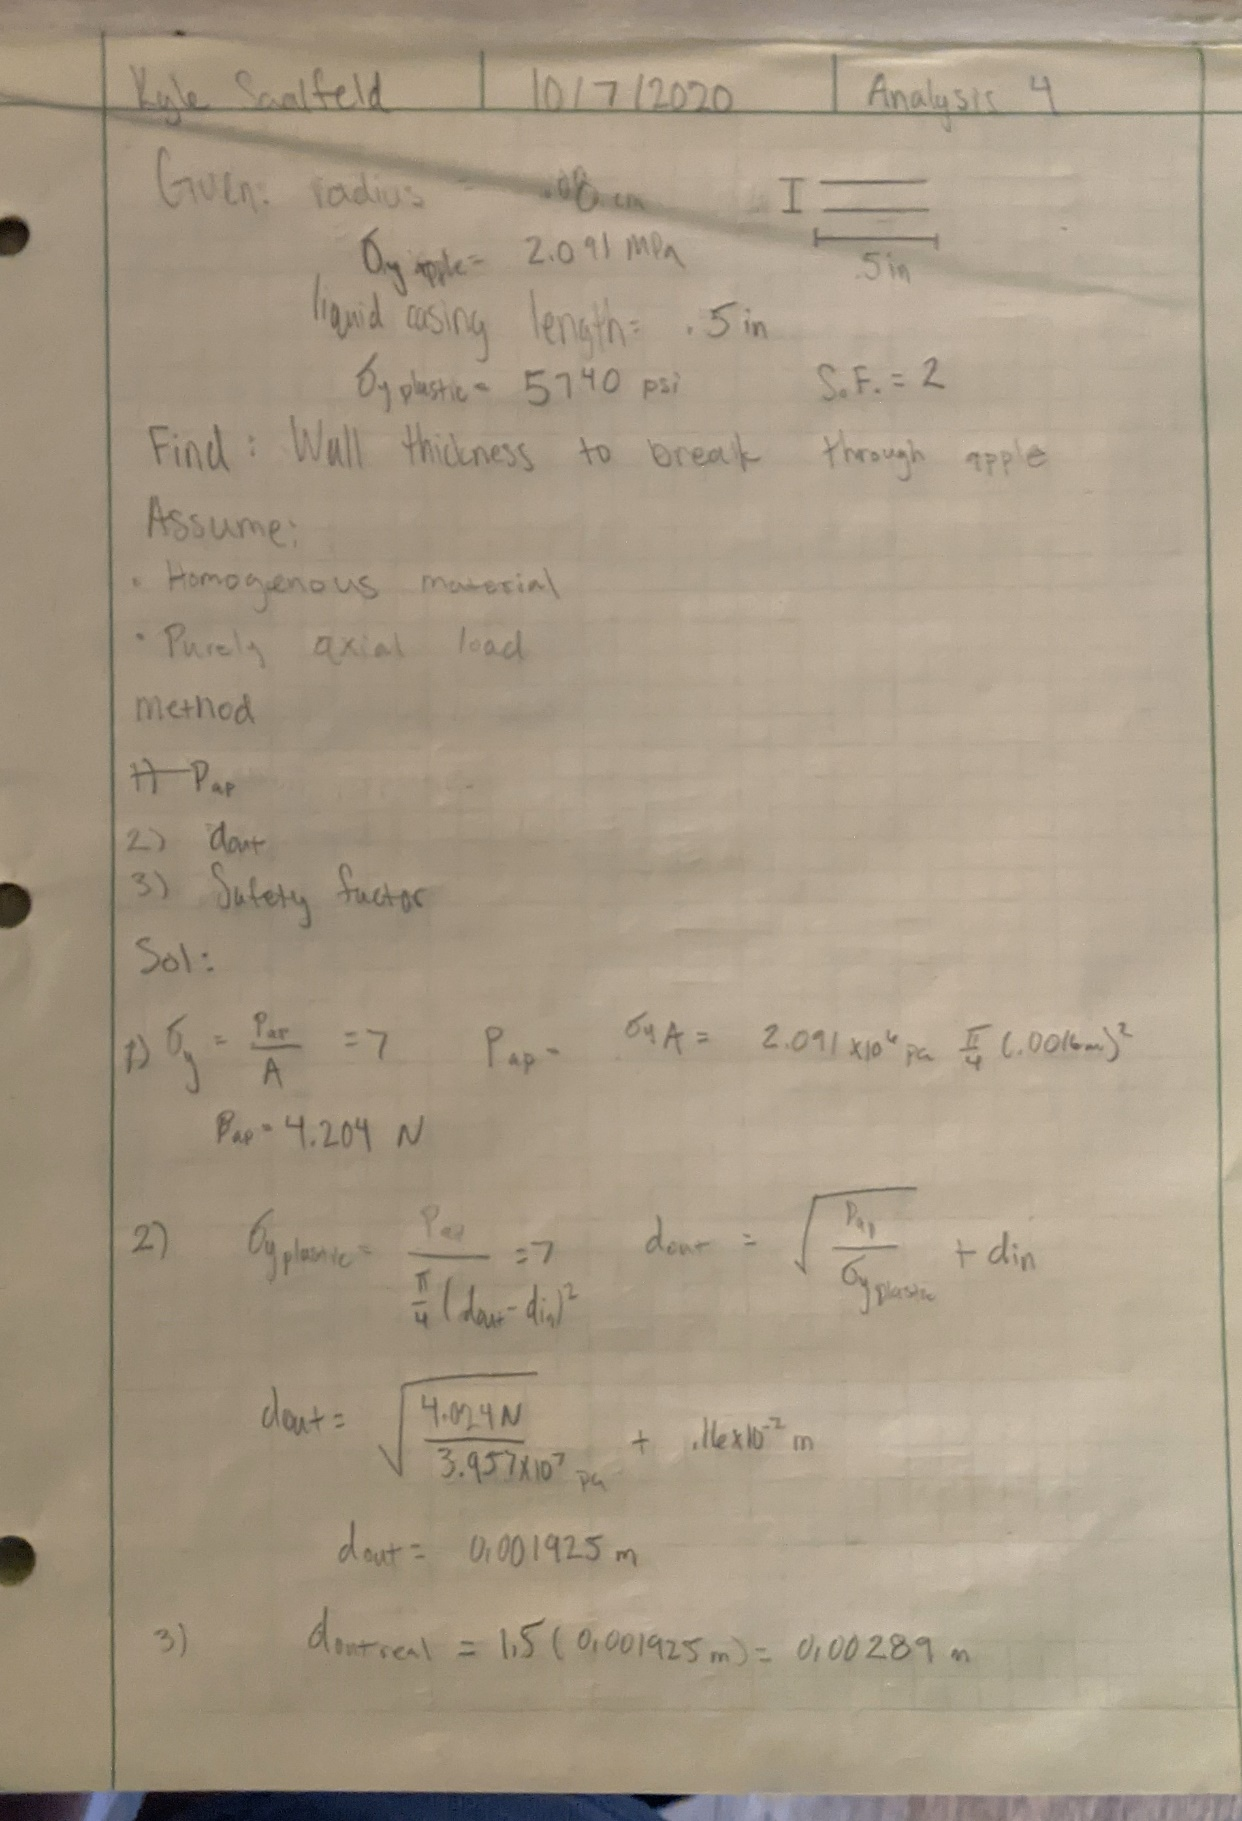 Kyle Saalfeld | 10/7/2020 | Analysis 4
Given: radius = .08 cm
I
.5in
σy apple = 2.091 MPa
liquid casing length = .5 in
σy plastic = 5740 psi S.F. = 2
Find: Wall thickness to break through apple
Assume:
• Homogenous material
• Purely axial load
method
1) Pap
2) dout
3) Safety factor
Sol:
1) σy = Pap/A => Pap = σyA = 2.091 x10⁶ pa π/4 (.0016m)²
Pap = 4.204 N
2) σy plastic = Pap / π/4 (dout - din)² => dout = √(Pap/σy plastic) + din
dout = √(4.024N / 3.957x10⁷ pa) + .16x10⁻² m
dout = 0.001925 m
3) dout real = 1.5 (0.001925 m) = 0.00289 m